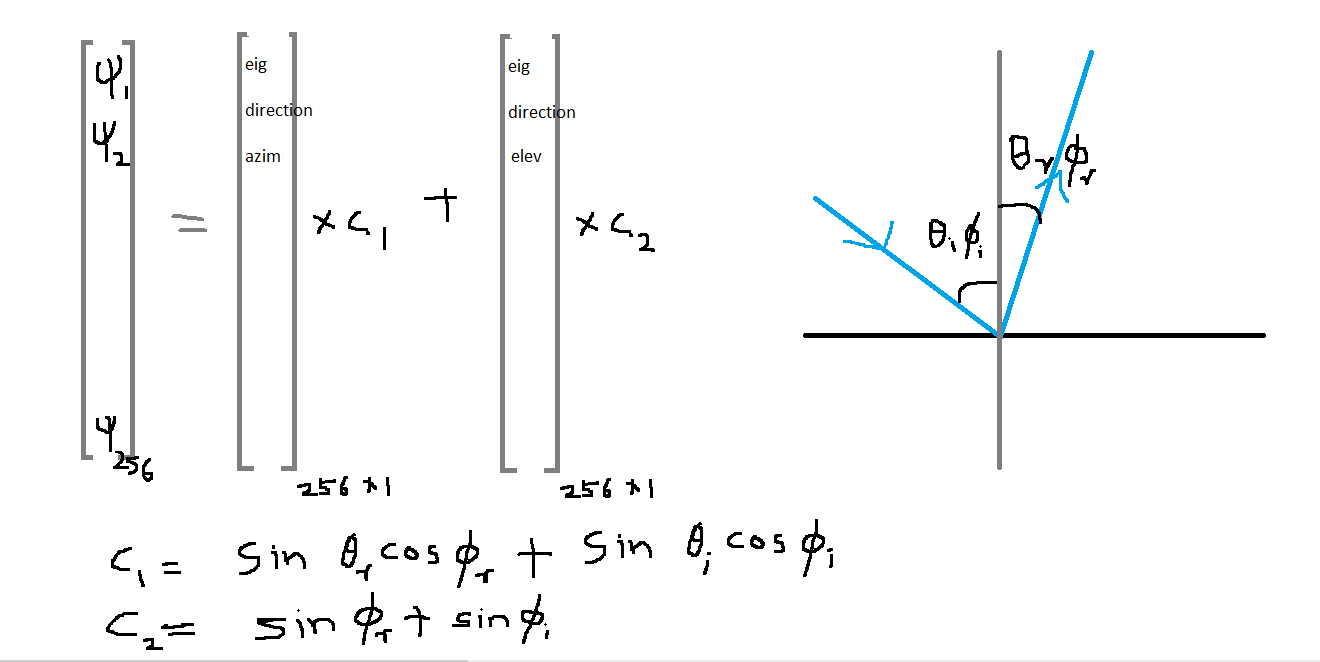 ψ₁
ψ₂
ψ₂₅₆
=
eig
direction
azim
256 * 1
× C₁
+
eig
direction
elev
256 * 1
× C₂
θᵢ ϕᵢ
θᵣ ϕᵣ
C₁ = sin θᵣ cos ϕᵣ + sin θᵢ cos ϕᵢ
C₂ = sin ϕᵣ + sin ϕᵢ